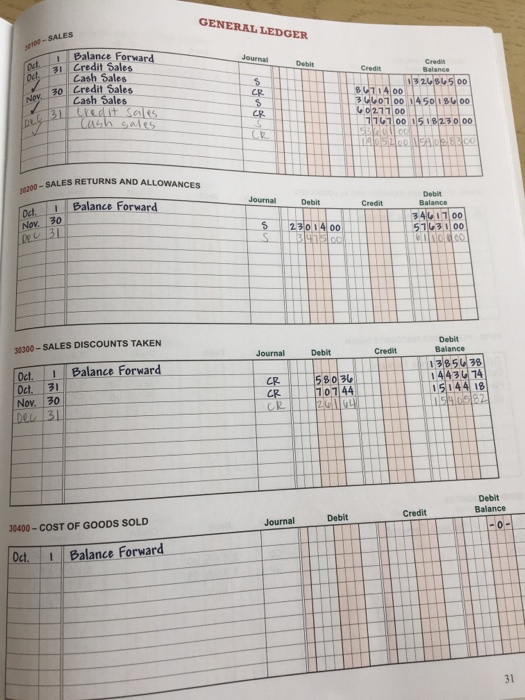 GENERAL LEDGER
30100 – SALES
Journal Debit Credit Credit Balance
Oct. 1 Balance Forward 1326865 00
Oct. 31 Credit Sales S 86714 00
✓ Cash Sales CR 36607 00 1450186 00
Nov. 30 Credit Sales S 60277 00
✓ Cash Sales CR 7767 00 1518230 00
Dec 31 Credit Sales S
Cash sales CR
30200 – SALES RETURNS AND ALLOWANCES
Journal Debit Credit Debit Balance
Oct. 1 Balance Forward 34617 00
Nov. 30 S 23014 00 57631 00
Dec 31 S 3475 00
30300 – SALES DISCOUNTS TAKEN
Journal Debit Credit Debit Balance
Oct. 1 Balance Forward 13856 38
Oct. 31 CR 580 36 14436 74
Nov. 30 CR 707 44 15144 18
Dec 31 CR 261 64
30400 – COST OF GOODS SOLD
Journal Debit Credit Debit Balance
Oct. 1 Balance Forward -0-
31